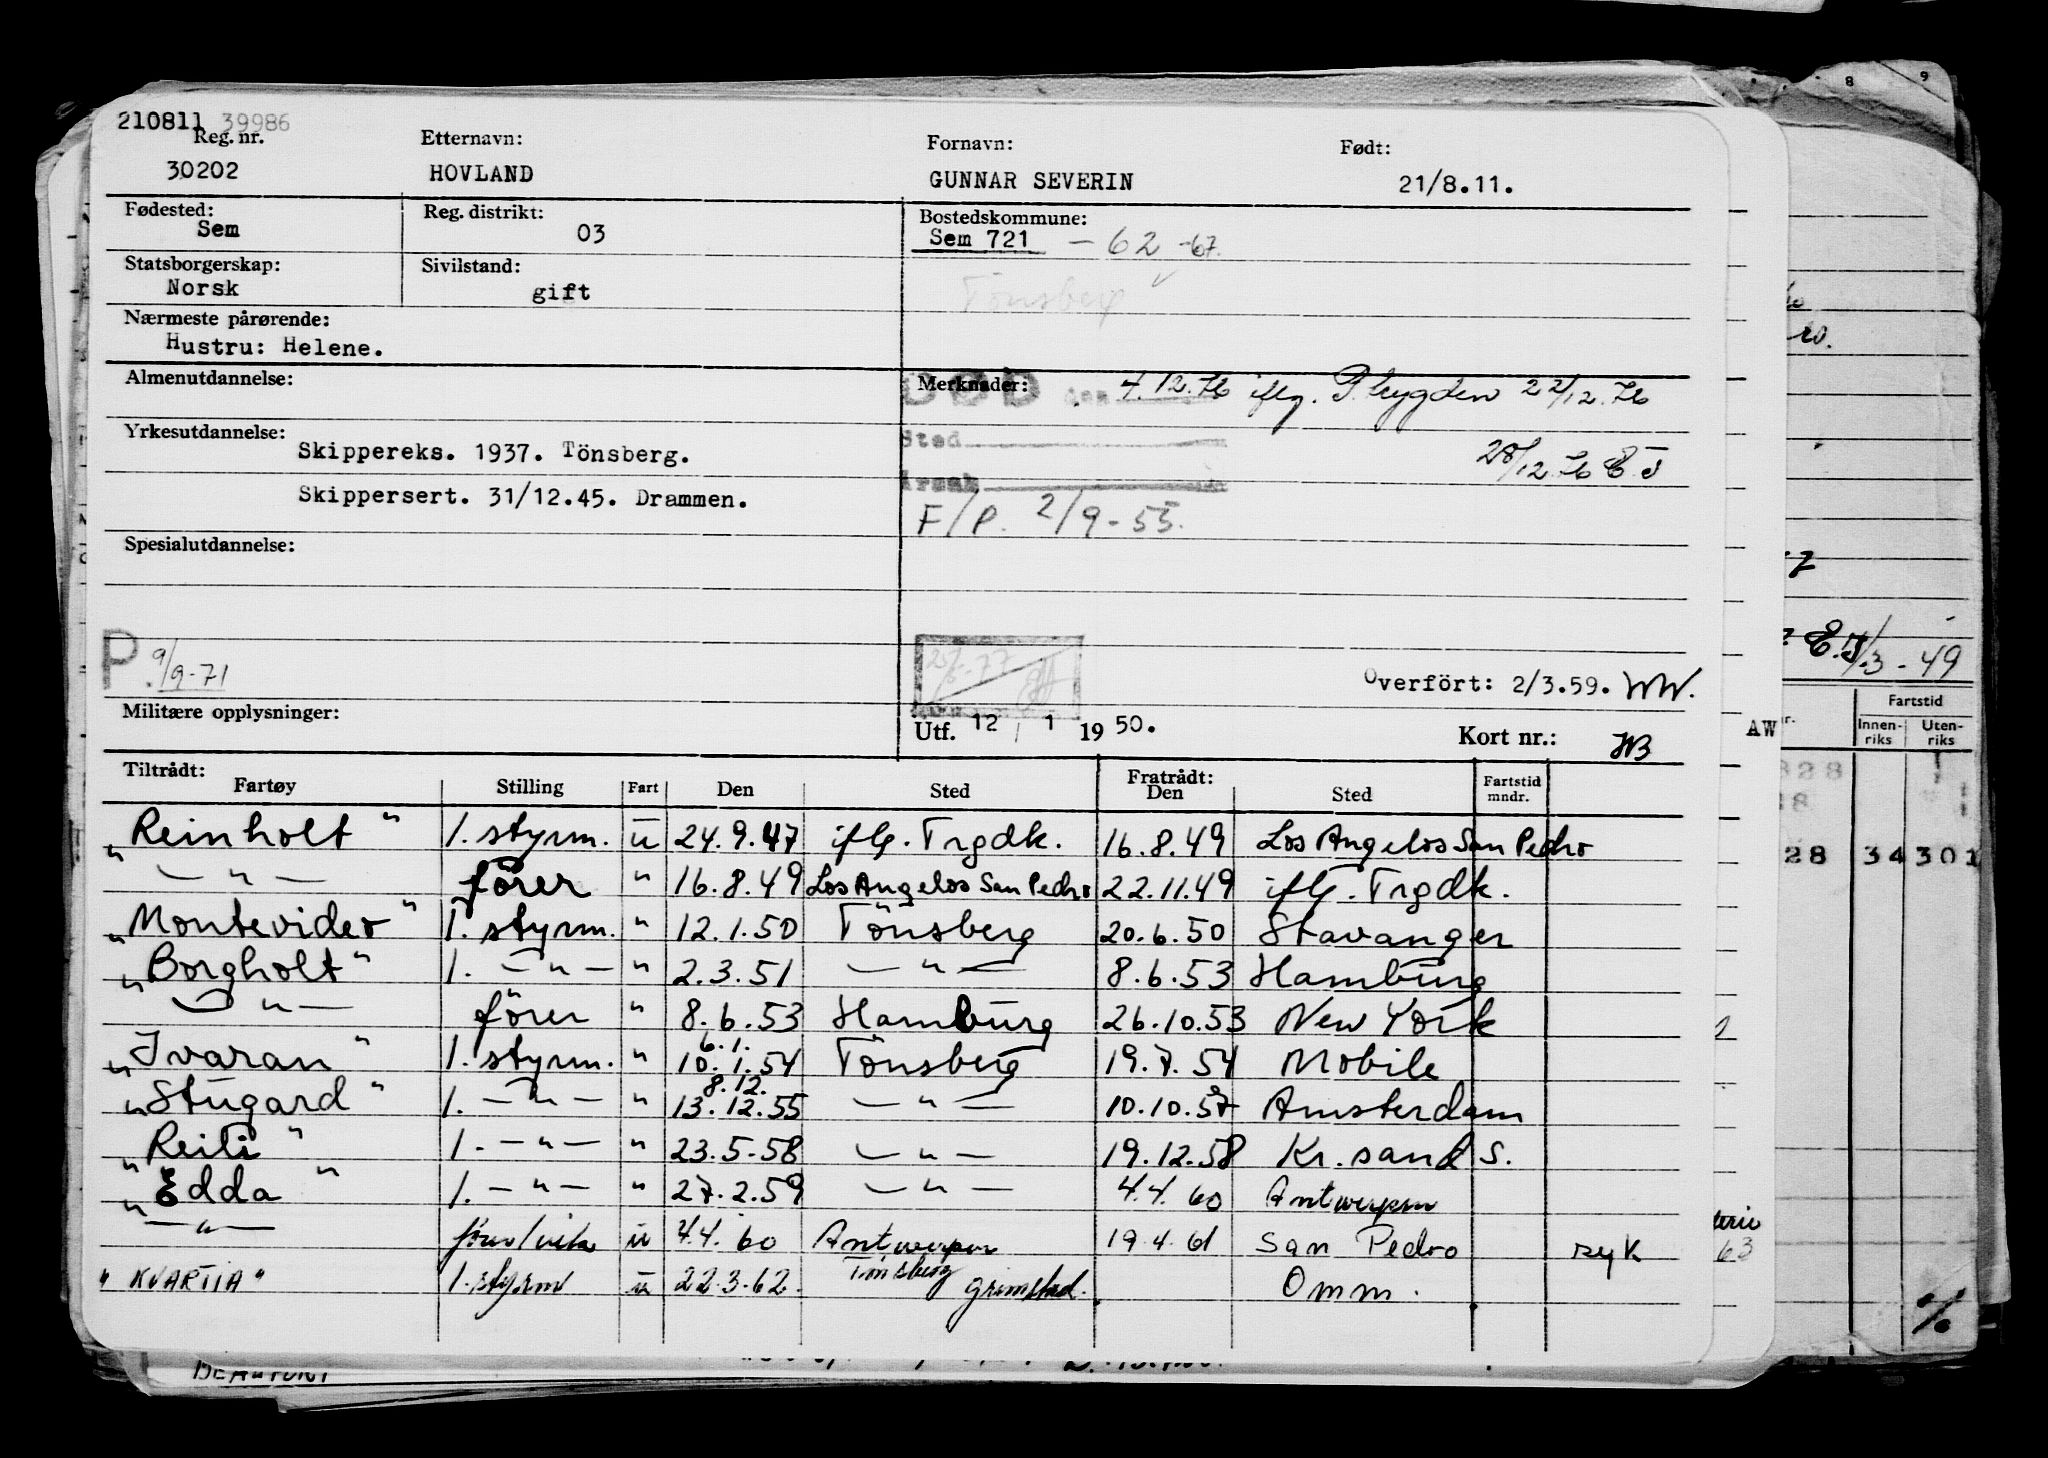 210811 39986
Reg. nr. Etternavn: Fornavn: Født:
30202 HOVLAND GUNNAR SEVERIN 21/8.11.
Fødested: Reg. distrikt: Bostedskommune:
Sem 03 Sem 721 - 62 -67.
Statsborgerskap: Sivilstand:
Norsk gift Tönsberg
Nærmeste pårørende:
Hustru: Helene.
Almenutdannelse: Merknader: DØD den 4.12.76 iflg. 22/12.76
Yrkesutdannelse: Sted
Skippereks. 1937. Tönsberg. 28/12.76 E.J
Årsak
Skippersert. 31/12.45. Drammen.
F/P. 2/9-55.
Spesialutdannelse:
P. 9/9-71
Overfört: 2/3.59. WW.
Militære opplysninger: Utf. 12 / 1 19 50. Kort nr.: HB
Tiltrådt: Fratrådt:
Fartøy Stilling Fart Den Sted Den Sted Fartstid mndr.
"Reinholt" 1. styrm. u 24.9.47 iflg. Trgdk. 16.8.49 Los Angelos San Pedro
— " — förer " 16.8.49 Los Angelos San Pedro 22.11.49 iflg. Trgdk.
"Montevideo" 1. styrm. " 12.1.50 Tönsberg 20.6.50 Stavanger
"Borgholt" 1. — " — " 2.3.51 — " — 8.6.53 Hamburg
— " — förer " 8.6.53 Hamburg 26.10.53 New York
6.1.
"Ivaran" 1. styrm. " 10.1.54 Tönsberg 19.7.54 Mobile
8.12.
"Stugard" 1. — " — " 13.12.55 — " — 10.10.57 Amsterdam
"Reiti" 1. — " — " 23.5.58 — " — 19.12.58 Kr.sand S.
"Edda" 1. — " — " 27.2.59 — " — 4.4.60 Antwerpen
— " — förer/vik u 4.4.60 Antwerpen 19.4.61 San Pedro syk
"KVARTIA" 1. styrm u 22.3.62. Tönsberg Grimstad. Omm.
8 9
E.J /.3-49
AW
Fartstid
Innenriks Utenriks
328
28 34 301
63
%